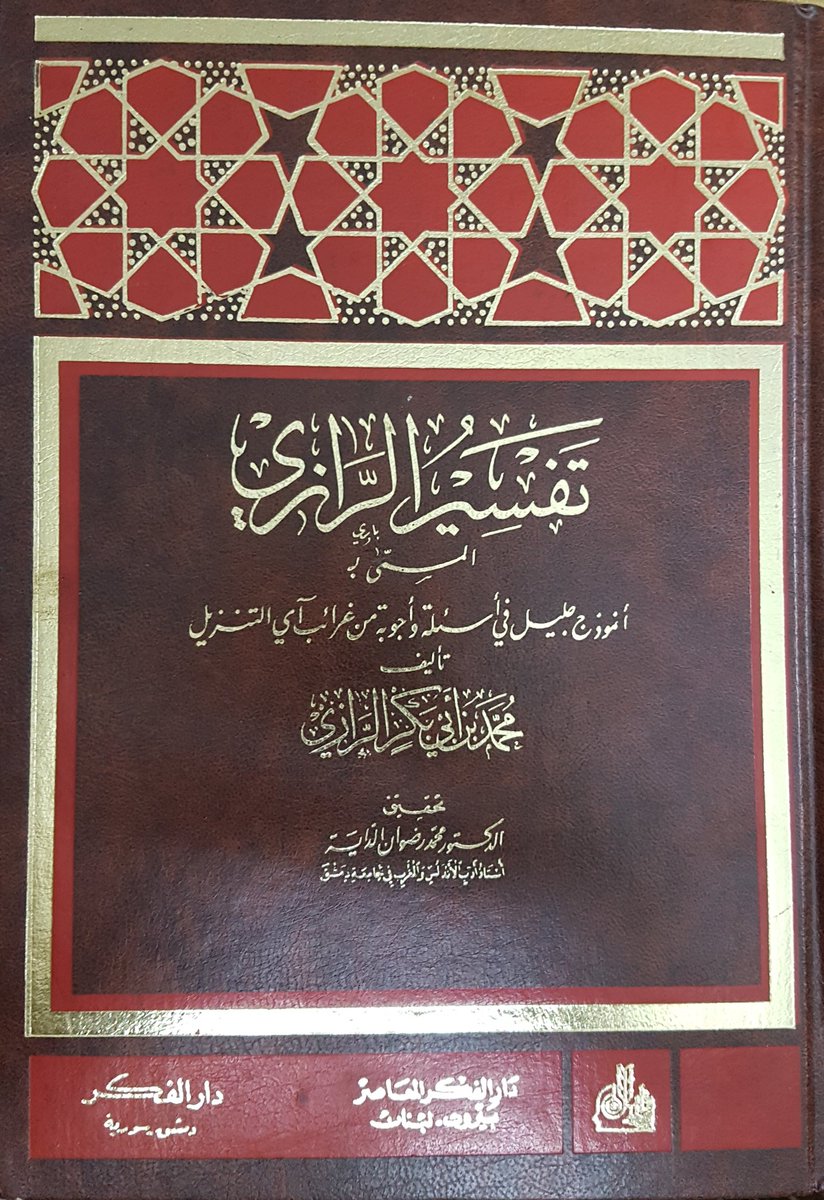 تَفسِيرُ الرَّازي
المسمّى بـ
أنموذج جليل في أسئلة وأجوبة من غرائب آي التنزيل
تأليف
محمّد بن أبي بكر الرّازي
تحقيق
الدكتور محمد رضوان الداية
أستاذ أدب الأندلس والمغرب في جامعة دمشق
دار الفكر المعاصر
بيروت - لبنان
دار الفكر
دمشق - سورية